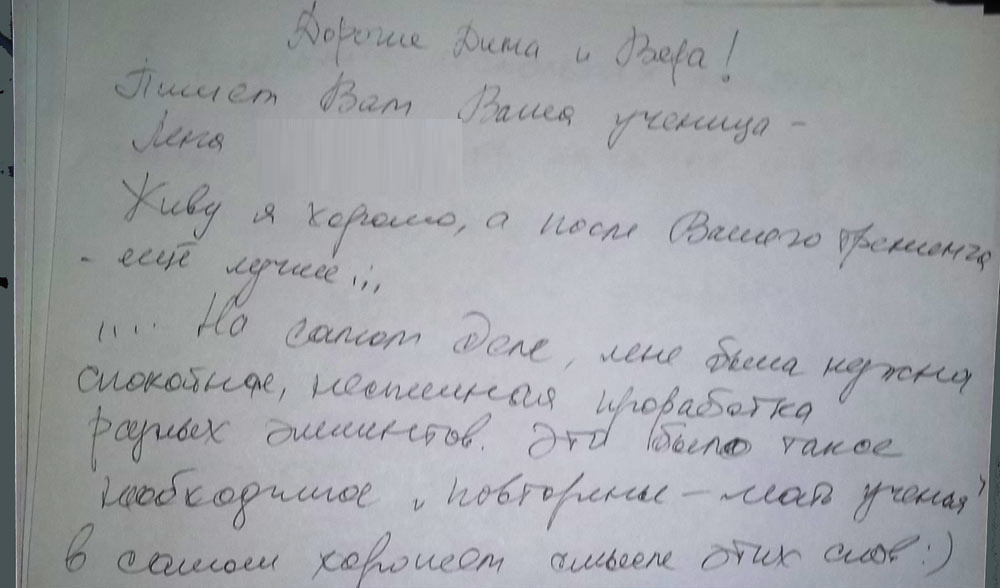 Дорогие Дима и Вера!
Пишет Вам Ваша ученица -
Лена
Живу я хорошо, а после Вашего тренинга
- ещё лучше...
.... На самом деле, мне была нужна
спокойная, неспешная проработка
разных элементов. Это было такое
необходимое "повторенье - мать ученья"
в самом хорошем смысле этих слов :)